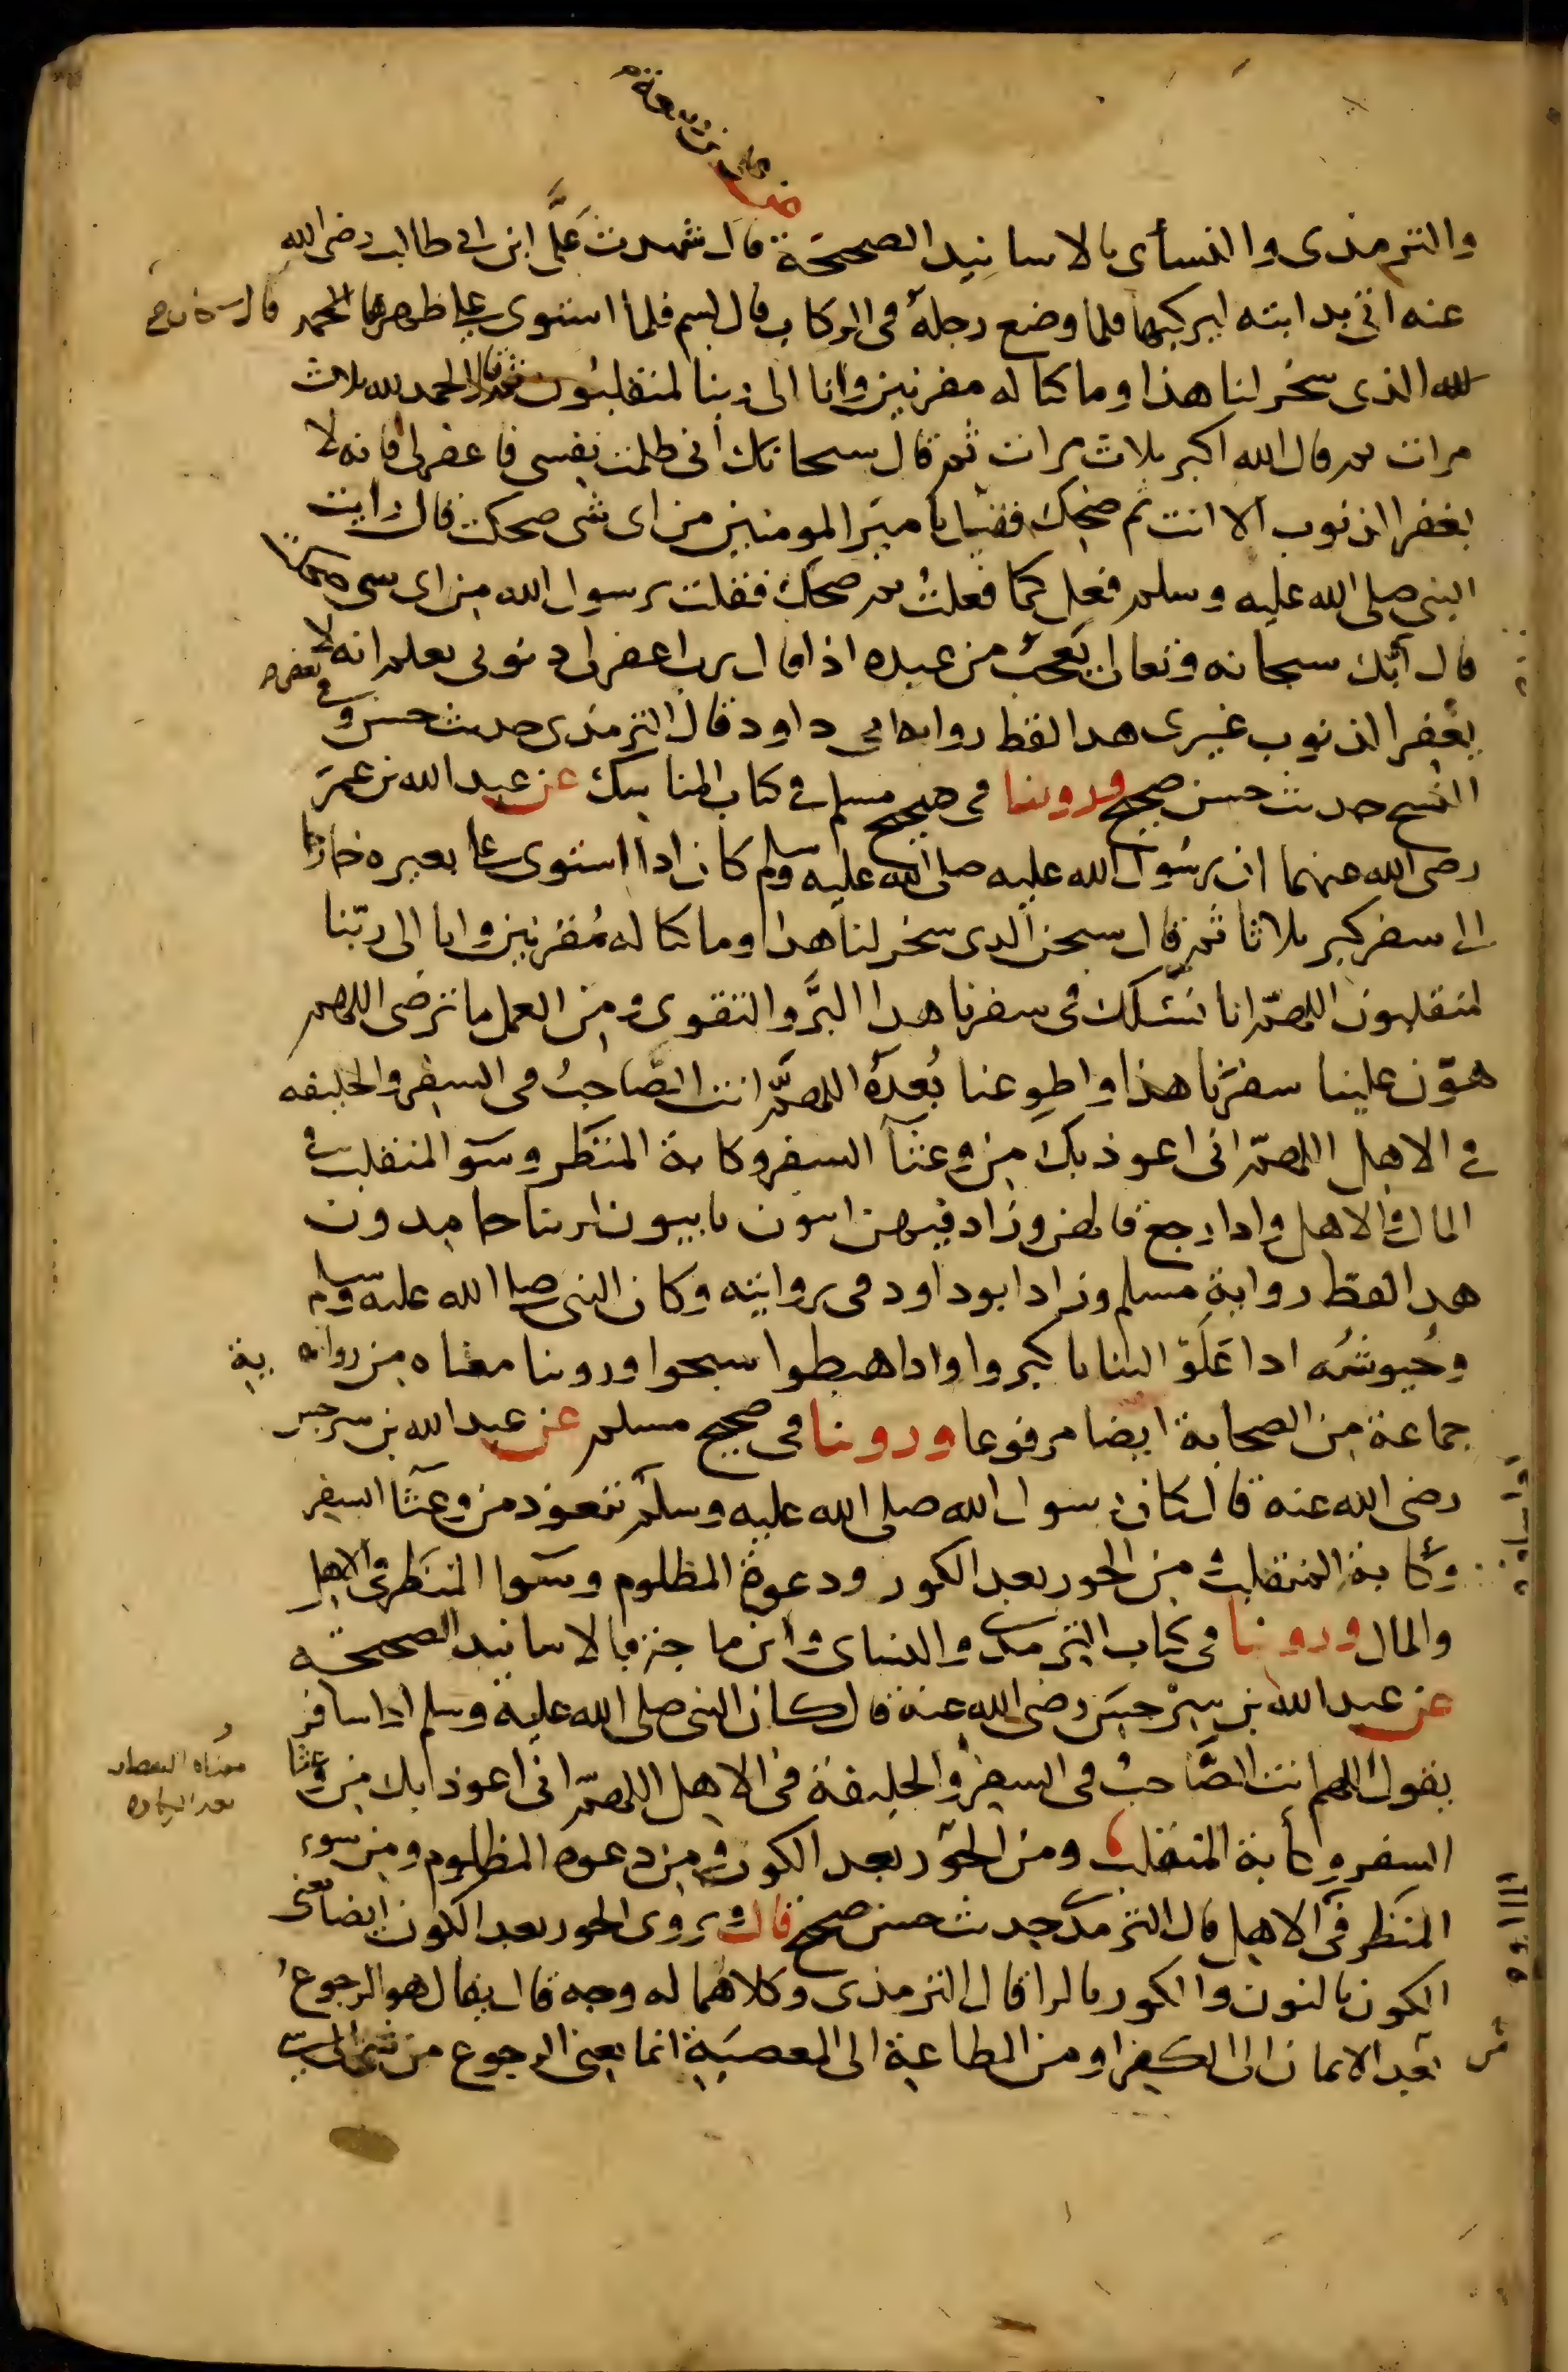 والترمذى والنسأى بالاسانيد الصحيحة قال شهدت على ابن ابى طالب رضى الله
عنه اتى بدابته ليركبها فلما وضع رجله فى الركاب قال بسم فلما استوى على ظهرها قال الحمد
لله الذى سخر لنا هذا وما كنا له مقرنين وانا الى ربنا لمنقلبون ثم قال الحمد لله ثلاث
مرات ثم قال الله اكبر ثلاث مرات ثم قال سبحانك انى ظلمت نفسى فاغفر لى فانه لا
يغفر الذنوب الا انت ثم ضحك فقيل يا امير المومنين من اى شى ضحكت قال رايت
النبى صلى الله عليه وسلم فعل كما فعلت ثم ضحك فقلت يرسول الله من اى شى ضحكت
قال ان ربك سبحانه وتعالى يعجب من عبده اذا قال رب اغفر لى ذنوبى يعلم انه لا
يغفر الذنوب غيرى هدا لفظ رواية ابى داود قال الترمذى حديث حسن وفى بعض
النسخ حديث حسن صحيح وروينا فى صحيح مسلم فى كتاب المناسك عن عبد الله بن عمر
رضى الله عنهما ان رسول الله عليه صلى الله عليه وسلم كان ادا استوى على بعيره خارجا
الى سفر كبر ثلاثا ثم قال سبحن الدى سخر لنا هدا وما كنا له مقرنين وانا الى ربنا
لمنقلبون اللهم انا نسئلك فى سفرنا هدا البر والتقوى ومن العمل ما ترضى اللهم
هون علينا سفرنا هذا واطو عنا بعده اللهم انت الصاحب فى السفر والخليفه
فى الاهل اللهم انى اعوذ بك من وعثآ السفر وكابة المنظر وسو المنقلب فى
المال والاهل وادا رجع قالهن وزاد فيهن ايبون تايبون لربنا حامدون
هدا لفظ رواية مسلم وزاد ابو داود فى روايته وكان النبى صلى الله عليه وسلم
وجيوشه ادا علو الثنايا كبروا وادا هبطوا سبحوا وروينا معناه من رواية
جماعة من الصحابة ايضا مرفوعا وروينا فى صحيح مسلم عن عبد الله بن سرجس
رضى الله عنه قال كان رسول الله صلى الله عليه وسلم يتعوذ من وعثآ السفر
وكابة المنقلب من الحور بعد الكور ودعوة المظلوم وسوا المنظر فى الاهل
والمال وروينا فى كتاب الترمدى والنساى وابن ماجة بالاسانيد الصحيحه
عن عبد الله بن سرجس رضى الله عنه قال كان النبى صلى الله عليه وسلم ادا سافر
يقول اللهم انت الصاحب فى السفر والخليفة فى الاهل اللهم انى اعوذ بك من وعثا
السفر وكأبة المنقلب ومن الحور بعد الكون ومن دعوه المظلوم ومن سوء
المنظر فى الاهل قال الترمدى حديث حسن صحيح قال ويروى الحور بعد الكون ايضا يعنى
الكون بالنون والكور بالرا قال الترمذى وكلاهما له وجه قال يقال هو الرجوع
بعد الايمان الى الكفر او من الطاعة الى المعصية انما يعنى الرجوع من شى الى شى
معناه النقصان
بعد الزياده